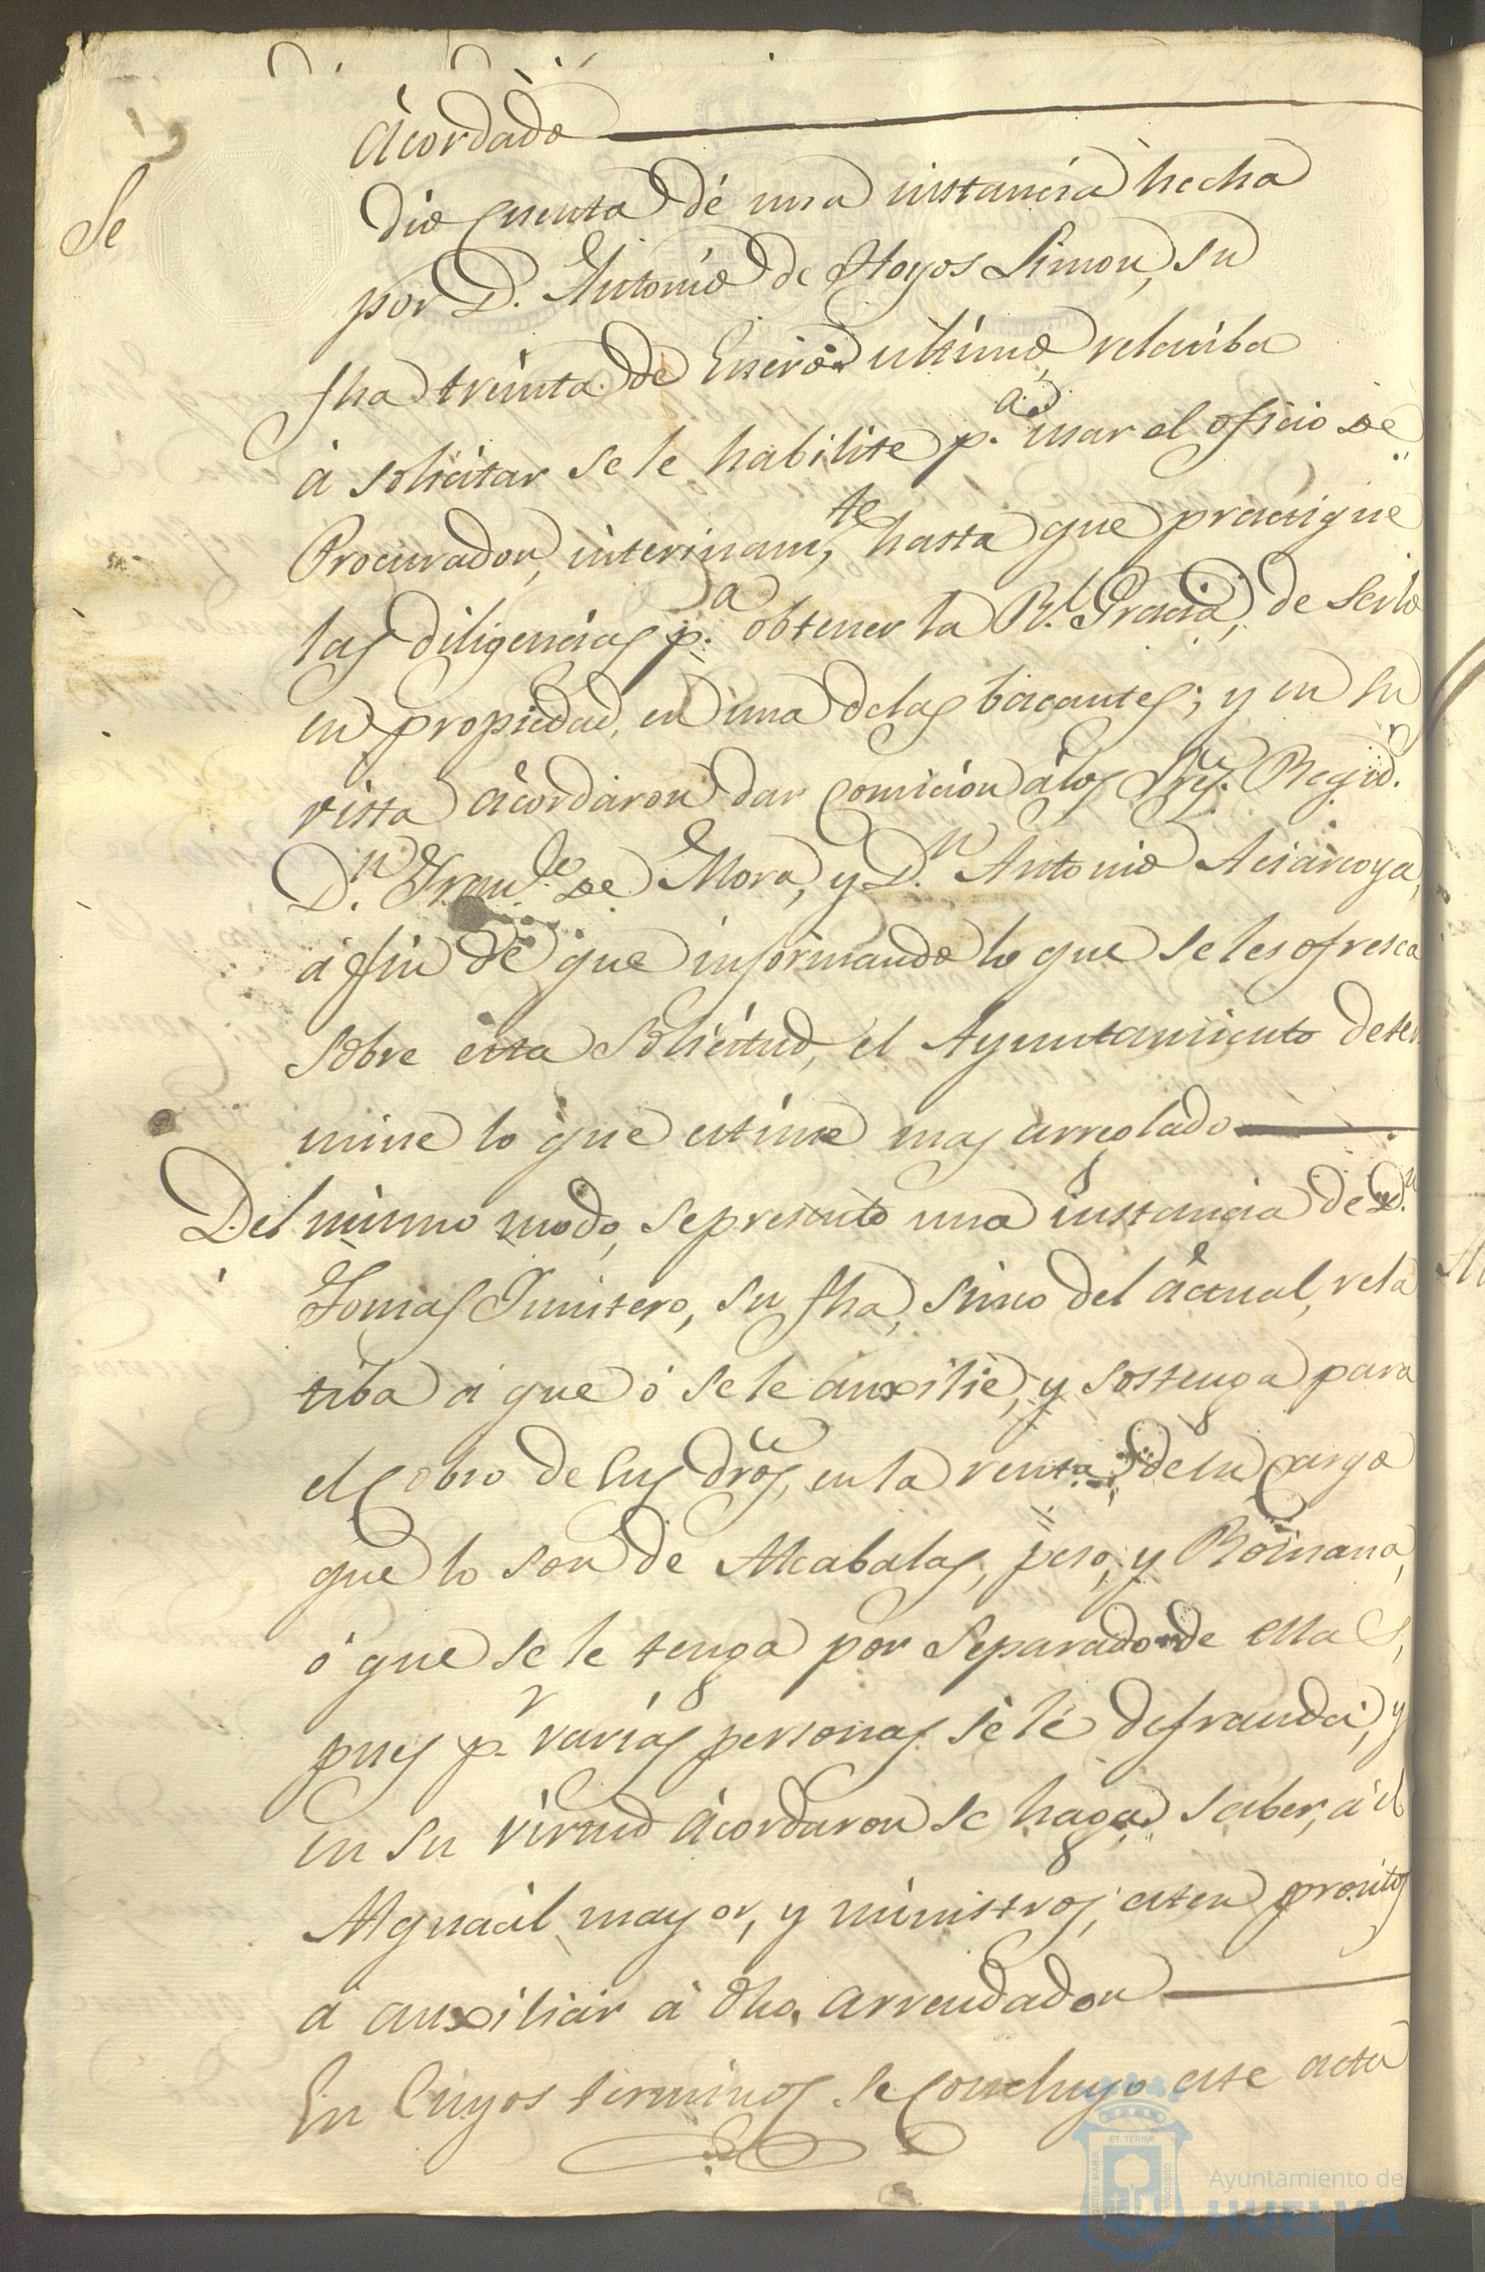 Acordado
Se
dio Cuenta de una instancia hecha
por D. Antonio de Hoyos Limon, su
fha treinta de Enero ultimo, relatiba
à solicitar se le habilite p.a usar el oficio de
Procurador, interinam.te hasta que practique
las diligencias p.a obtener la R.l Gracia, de serlo
en propiedad, en una delas bacantes; y en su
vista acordaron dar Comicion álos Sres. Regid.r
D.n Fran.co de Mora, y D.n Antonio
á fin de que informando lo que se les ofresca
sobre esta solicitud, el Ayuntamiento deter
mine lo que estime mas arreglado
Del mismo modo, se presento una instancia de D.n
Tomas Quintero, su fha, sinco del actual, rela
tiba á que ó se le auxilie, y sostenga para
el Cobro de sus dros, en la renta de su Cargo
que lo son de Alcabalas, peso, y Romana,
ó que se le tenga por separado de ellas,
pues p.r varias personas se le defrauda, y
en su virtud acordaron se haga saber, á el
Alguacil mayor, y ministros, esten prontos
á auxiliar à dho. arrendador
En Cuyos terminos se Concluyo este acta
ET TERRÆ
PORTUS MARIS
CUSTODIA
Ayuntamiento de
HUELVA